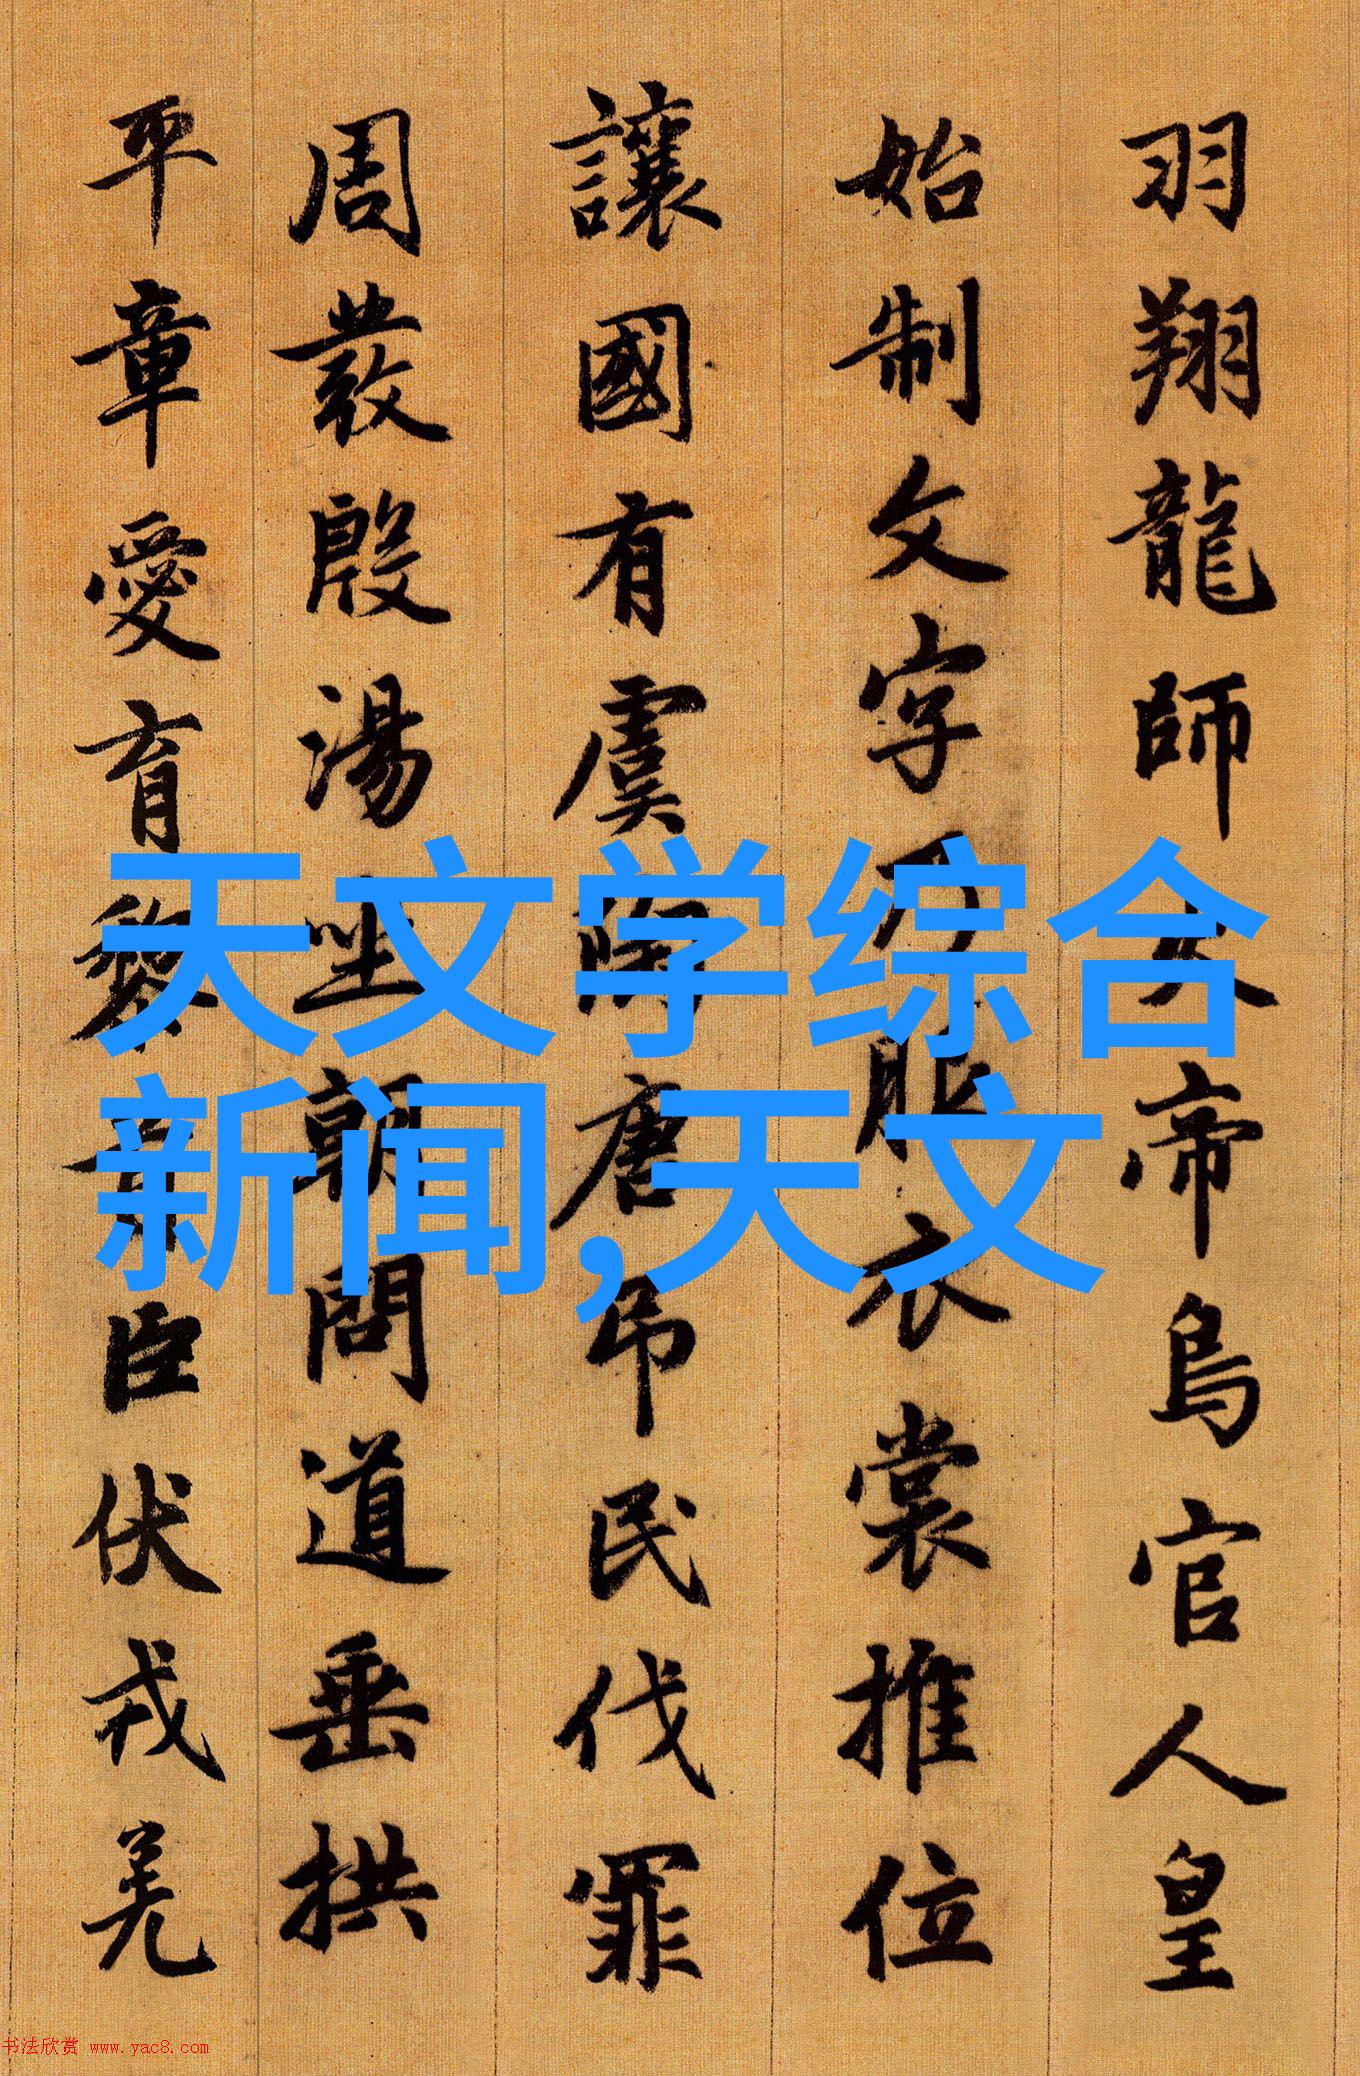 羽翔龍師火帝鳥官人皇
始制文字乃服衣裳推位
讓國有虞陶唐吊民伐罪
周發殷湯坐朝問道垂拱
平章愛育黎首臣伏戎羌
天文学综合
新闻,天文
书法欣赏 www.yac8.com